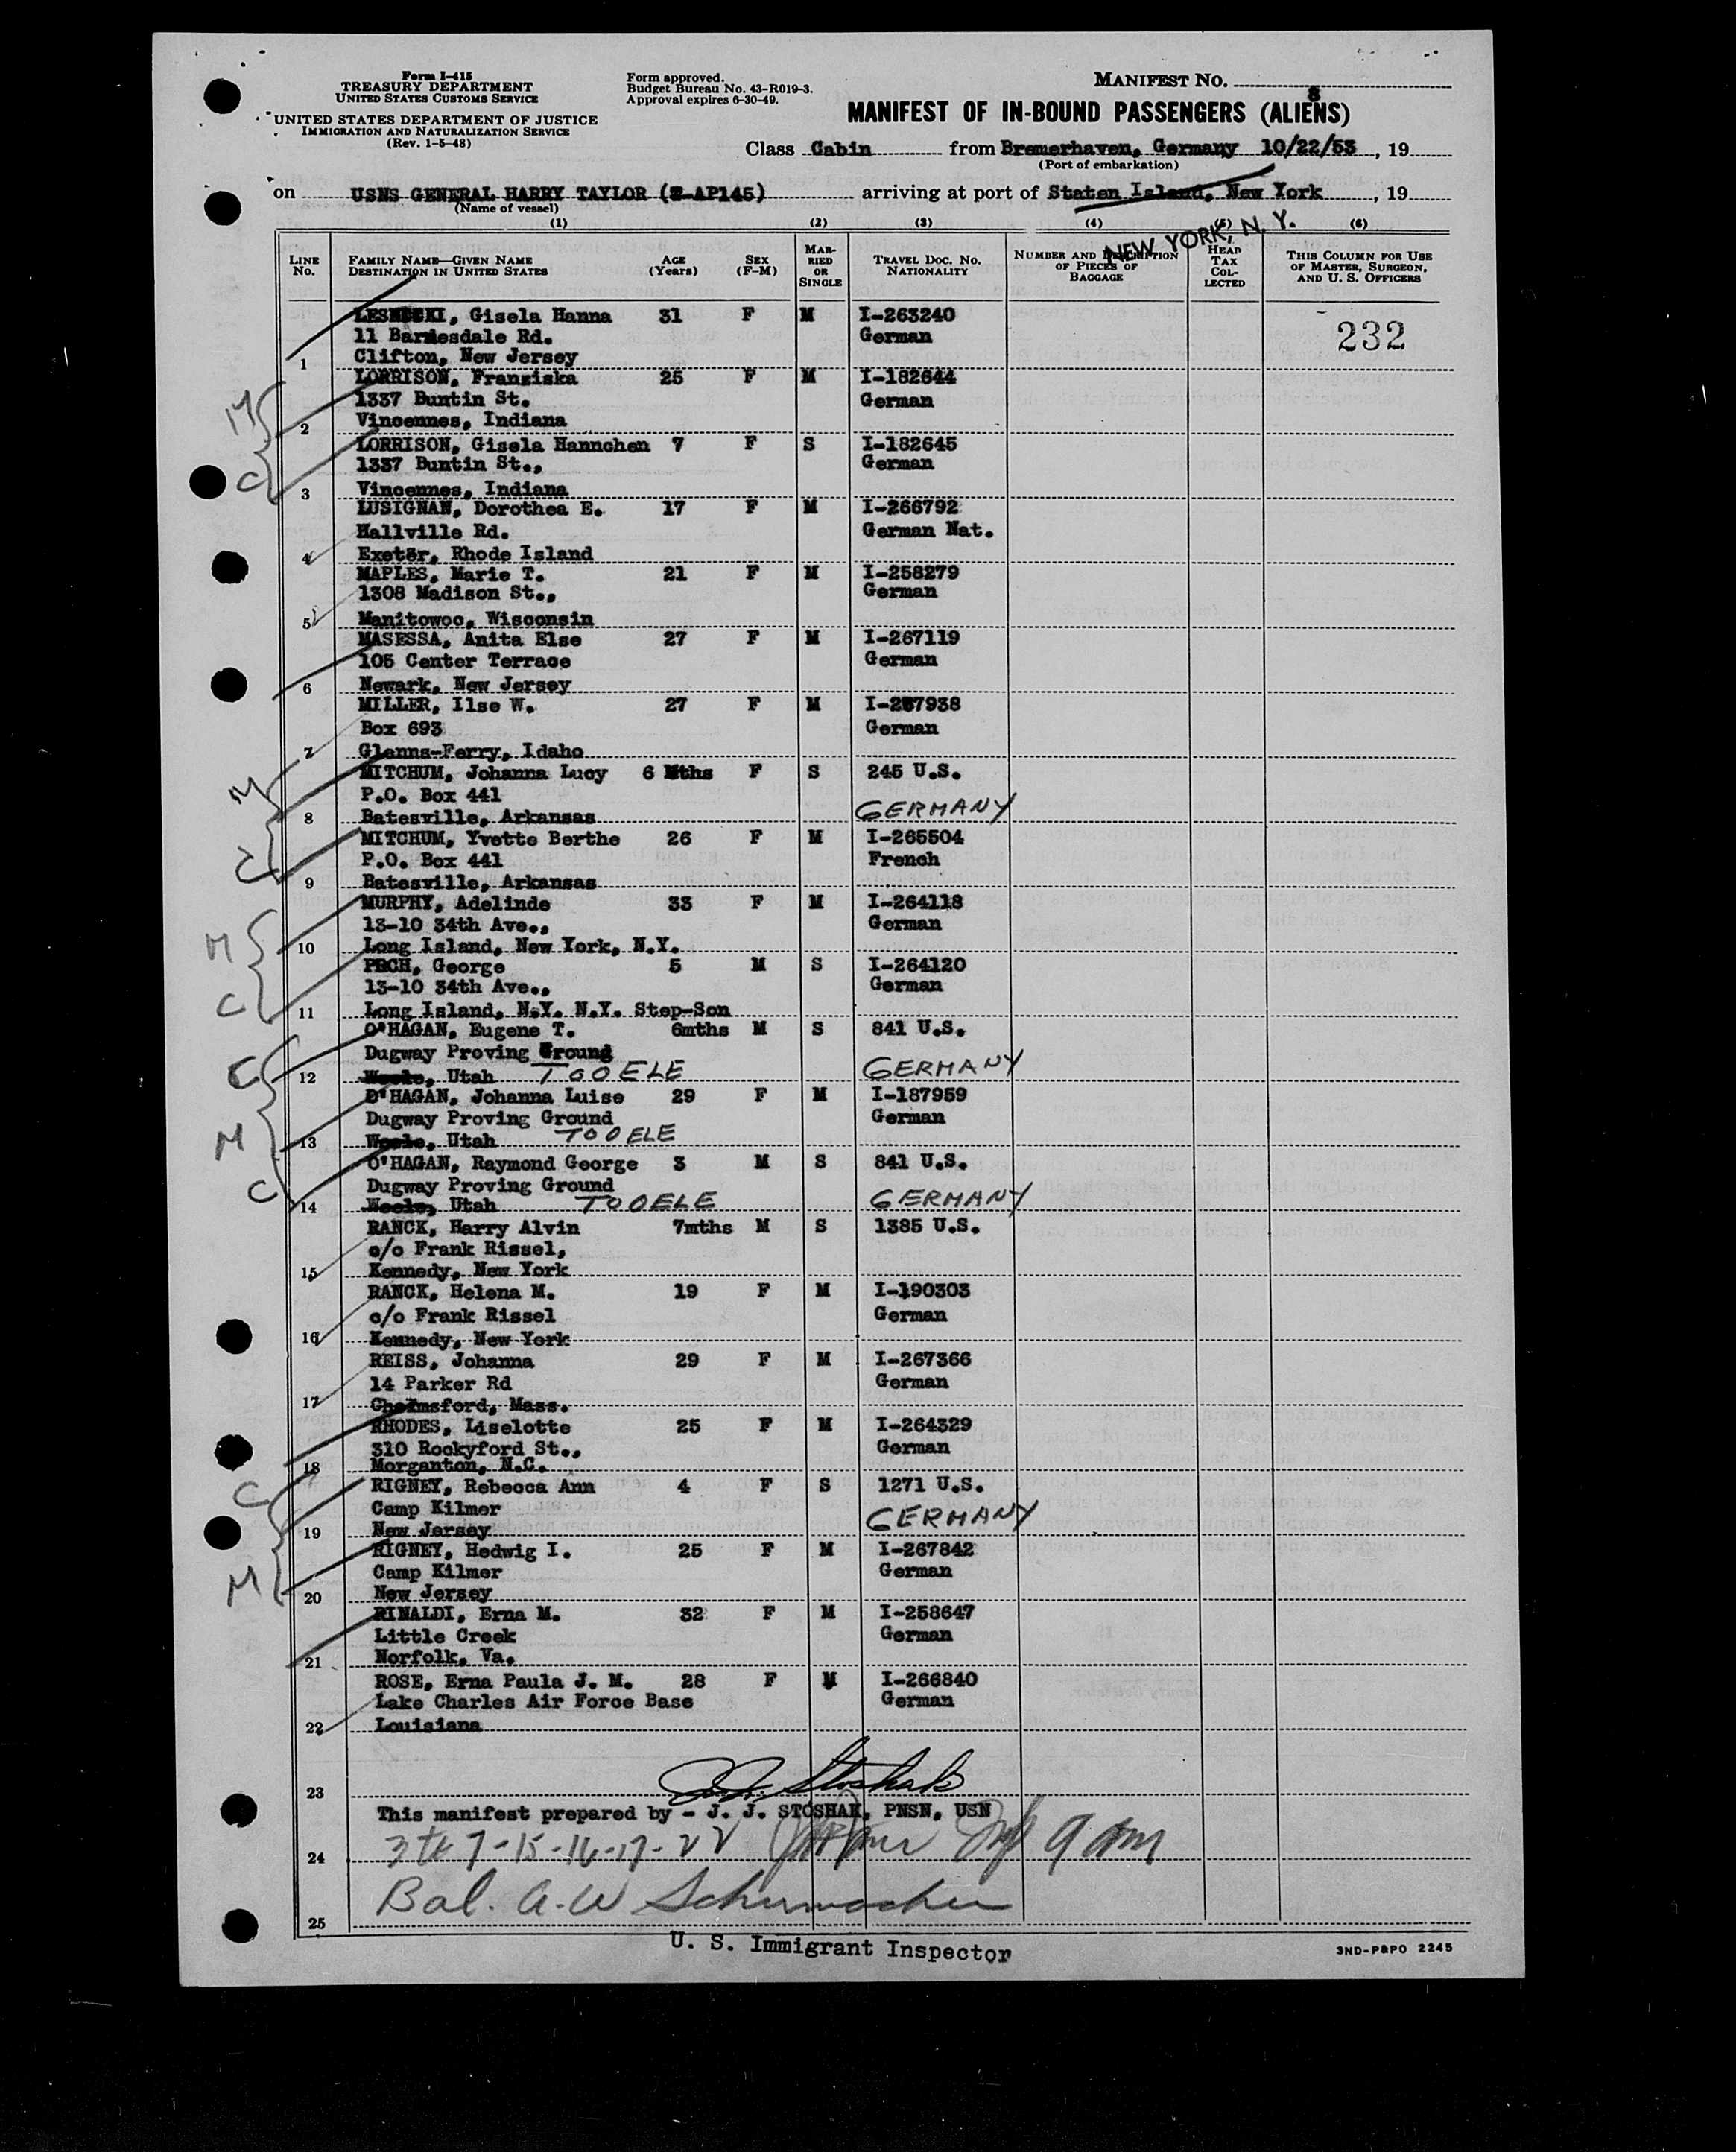 Form I-415
TREASURY DEPARTMENT
UNITED STATES CUSTOMS SERVICE
UNITED STATES DEPARTMENT OF JUSTICE
IMMIGRATION AND NATURALIZATION SERVICE
(Rev. 1-5-48)
Form approved.
Budget Bureau No. 43-R019-3.
Approval expires 6-30-49.
MANIFEST NO.
8
MANIFEST OF IN-BOUND PASSENGERS (ALIENS)
Class Cabin from Bremerhaven, Germany 10/22/53, 19
(Port of embarkation)
on USNS GENERAL HARRY TAYLOR (T-AP145) arriving at port of Staten Island, New York, 19
(Name of vessel)
NEW YORK, N. Y.
(1) (2) (3) (4) (5) (6)
LINE No. FAMILY NAME—GIVEN NAME DESTINATION IN UNITED STATES AGE (Years) SEX (F-M) MARRIED OR SINGLE TRAVEL DOC. NO. NATIONALITY NUMBER AND DESCRIPTION OF PIECES OF BAGGAGE HEAD TAX COLLECTED THIS COLUMN FOR USE OF MASTER, SURGEON, AND U. S. OFFICERS
Gisela Hanna 31 F M I-263240
232
11 Barnesdale Rd. German
1 Clifton, New Jersey
LORRISON, Franziska 25 F M I-182644
M 1337 Buntin St. German
2 Vincennes, Indiana
LORRISON, Gisela Hannchen 7 F S I-182645
C 1337 Buntin St., German
3 Vincennes, Indiana
LUSIGNAN, Dorothea E. 17 F M I-266792
Hallville Rd. German Nat.
4 Exeter, Rhode Island
MAPLES, Marie T. 21 F M I-258279
1308 Madison St., German
5 Manitowoc, Wisconsin
MASESSA, Anita Else 27 F M I-267119
105 Center Terrace German
6 Newark, New Jersey
MILLER, Ilse W. 27 F M
Box 693 German
7 Glenns-Ferry, Idaho
MITCHUM, Johanna Lucy 6 Mths F S 245 U.S.
M P.O. Box 441
8 Batesville, Arkansas GERMANY
MITCHUM, Yvette Berthe 26 F M I-265504
C P.O. Box 441 French
9 Batesville, Arkansas
MURPHY, Adelinde 33 F M I-264118
M 13-10 34th Ave., German
10 Long Island, New York, N.Y.
PECH, George 5 M S I-264120
C 13-10 34th Ave., German
11 Long Island, N.Y. N.Y. Step-Son
O'HAGAN, Eugene T. 6mths M S 841 U.S.
C Dugway Proving Ground
12 Utah TOOELE GERMANY
O'HAGAN, Johanna Luise 29 F M I-187959
M Dugway Proving Ground German
13 Utah TOOELE
O'HAGAN, Raymond George 3 M S 841 U.S.
C Dugway Proving Ground
14 Utah TOOELE GERMANY
RANCK, Harry Alvin 7mths M S 1385 U.S.
c/o Frank Rissel,
15 Kennedy, New York
RANCK, Helena M. 19 F M I-190303
c/o Frank Rissel German
16 Kennedy, New York
REISS, Johanna 29 F M I-267366
14 Parker Rd German
17 Chelmsford, Mass.
RHODES, Liselotte 25 F M I-264329
310 Rockyford St., German
18 Morganton, N.C.
C RIGNEY, Rebecca Ann 4 F S 1271 U.S.
Camp Kilmer
19 New Jersey GERMANY
RIGNEY, Hedwig I. 25 F M I-267842
M Camp Kilmer German
20 New Jersey
RINALDI, Erna M. 32 F M I-258647
Little Creek German
21 Norfolk, Va.
ROSE, Erna Paula J. M. 28 F M I-266840
Lake Charles Air Force Base German
22 Louisiana
J. J. Stoshak
23
This manifest prepared by - J. J. STOSHAK, PNSN, USN
24 7-15-16-17-22
25 Bal. A.W Schumacher
U. S. Immigrant Inspector
3ND-P&PO 2245